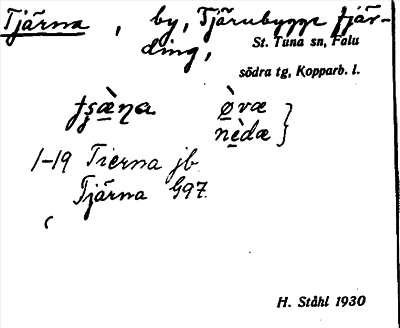 Tjärna, by, Tjärnbygge fjär-
ding,
St. Tuna sn, Falu
södra tg, Kopparb. l.
òvæ
nèdæ }
1-19 Tierna jb
Tjärna G97.
H. Ståhl 1930